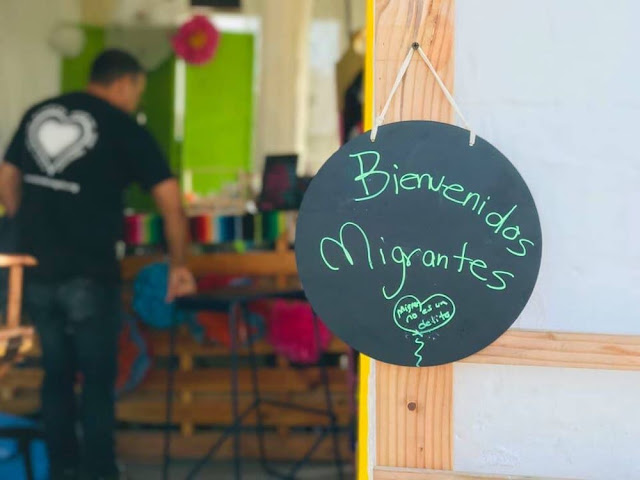 Bienvenidos
Migrantes
Migrar es un
no delito